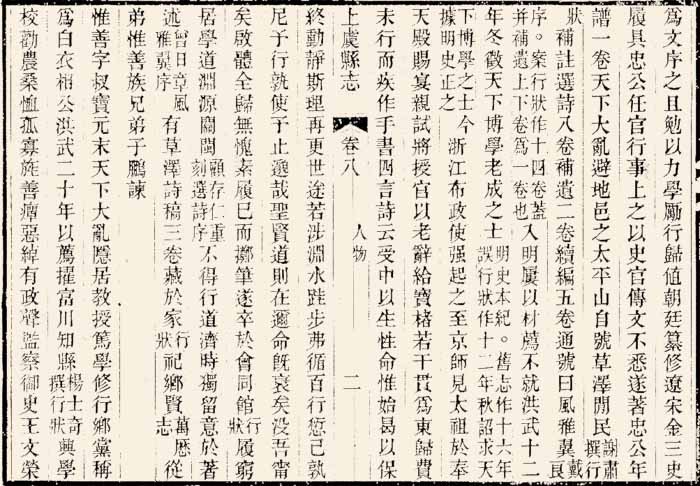 爲文序之且勉以力學勵行歸値朝廷纂修遼宋金三史
履具忠公任官行事上之以史官傳文不悉遂著忠公年
譜一卷天下大亂避地邑之太平山自號草澤閒民謝肅撰行
狀補註選詩八卷補遺二卷續編五卷通號曰風雅翼戴良
序。案行狀作十四卷蓋并補遺上下卷爲一卷也入明屢以材薦不就洪武十二
年冬徵天下博學老成之士明史本紀。舊志作十六年誤行狀作十二年秋詔求天
下博學之士今據明史正之浙江布政使强起之至京師見太祖於奉
天殿賜宴親試將授官以老辭給寶楮若干貫爲東歸費
未行而疾作手書四言詩云受中以生性命惟始曷以保
上虞縣志 卷八 人物 二
終動靜斯理再更世途若涉淵水跬步弗循百行愆已孰
尼予行孰使予止邈哉聖賢道則在邇命旣衰矣没吾甯
矣啟體全歸無愧素履已而擲筆遂卒於會同館行狀履窮
居學道淵源關閩顧存仁重刻選詩序不得行道濟時獨留意於著
述曾日章風雅翼序有草澤詩稿三卷藏於家行狀祀鄉賢萬厯志從
弟惟善族兄弟子鵬諫
惟善字叔寶元末天下大亂隱居教授篤學修行鄉黨稱
爲白衣相公洪武二十年以薦擢富川知縣楊士奇撰行狀興學
校勸農桑恤孤寡旌善癉惡綽有政聲監察御史王文榮